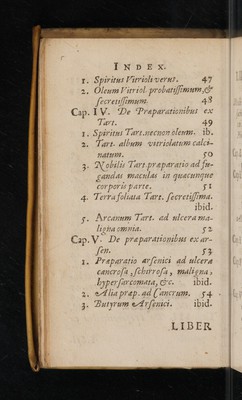 INDEX.
1. Spiritus Vitrioli verus. 47
2. Oleum Vitriol. probatissimum, &
secretissimum. 48
Cap. IV. De Præparationibus ex
Tart. 49
1. Spiritus Tart. necnon oleum. ib.
2. Tart. album vitriolatum calci-
natum. 50
3. Nobilis Tart. præparatio ad fu-
gandas maculas in quacunque
corporis parte. 51
4. Terra foliata Tart. secretissima.
ibid.
5. Arcanum Tart. ad ulcera ma-
ligna omnia. 52
Cap. V. De præparationibus ex ar-
sen. 53
1. Præparatio arsenici ad ulcera
cancrosa, schirrosa, maligna,
hypersarcomata, &c. ibid.
2. Alia præp. ad Cancrum. 54
3. Butyrum Arsenici. ibid.
LIBER